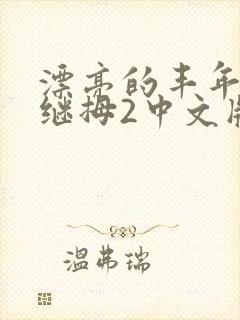 漂亮的丰年
继拇2中文版
温弗瑞